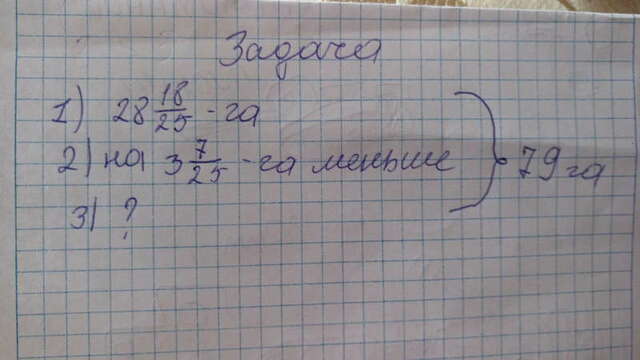 Задача
1) 28 18/25 - га
2) на 3 7/25 - га меньше
3) ?
79 га